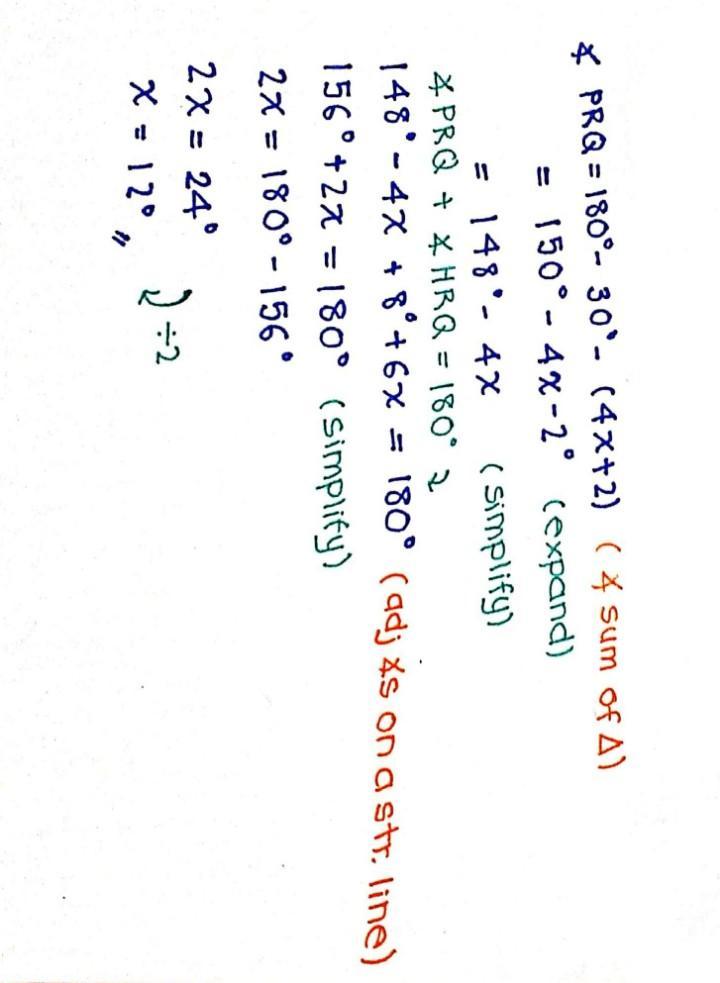 ∡ PRQ = 180° - 30° - (4x+2) (∡ sum of Δ)
= 150° - 4x - 2° (expand)
= 148° - 4x (simplify)
∡ PRQ + ∡ HRQ = 180° 2
148° - 4x + 8° + 6x = 180° (adj ∡s on a str. line)
156° + 2x = 180° (simplify)
2x = 180° - 156°
2x = 24°
÷2
x = 12° "